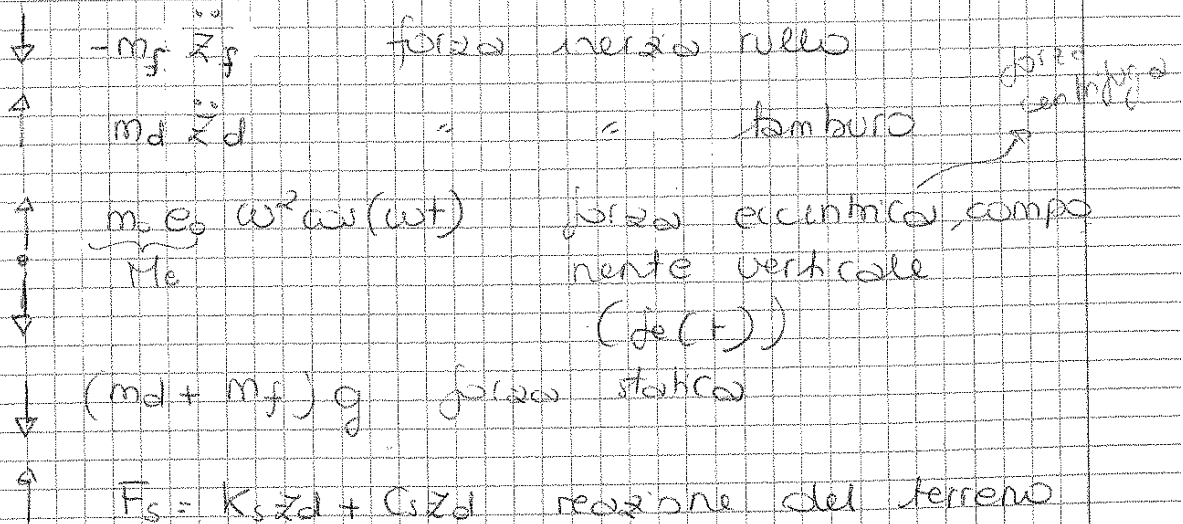 ↓ -m_f z̈_f forza inerzia rullo
↑ m_d z̈_d " " tamburo
forza centrifuga
↑ m_0 e_0 ω² cos(ωt) forza eccentrica, compo
↓ M_e nente verticale
(fe(t))
↓ (m_d + m_f) g forza statica
↑ F_s = K_s z_d + C_s z_d reazione del terreno